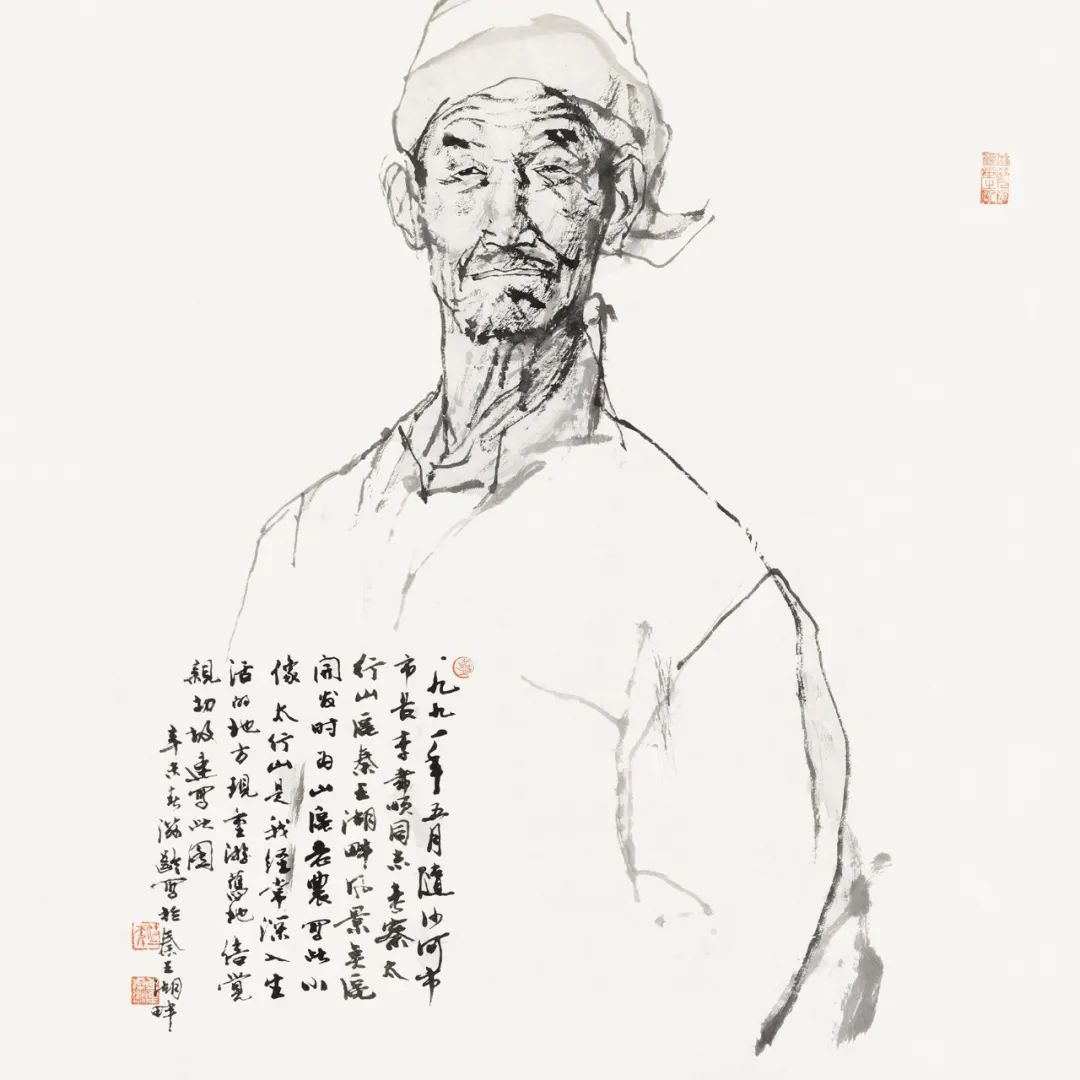 一九九一年五月隨沙河市
市长李順同志考察太
行山區秦王湖畔风景區
開发时为山區老農写此小
像太行山是我经常深入生
活的地方現重游舊地倍觉
親切故速写此图
辛未春滋齡写於秦王湖畔